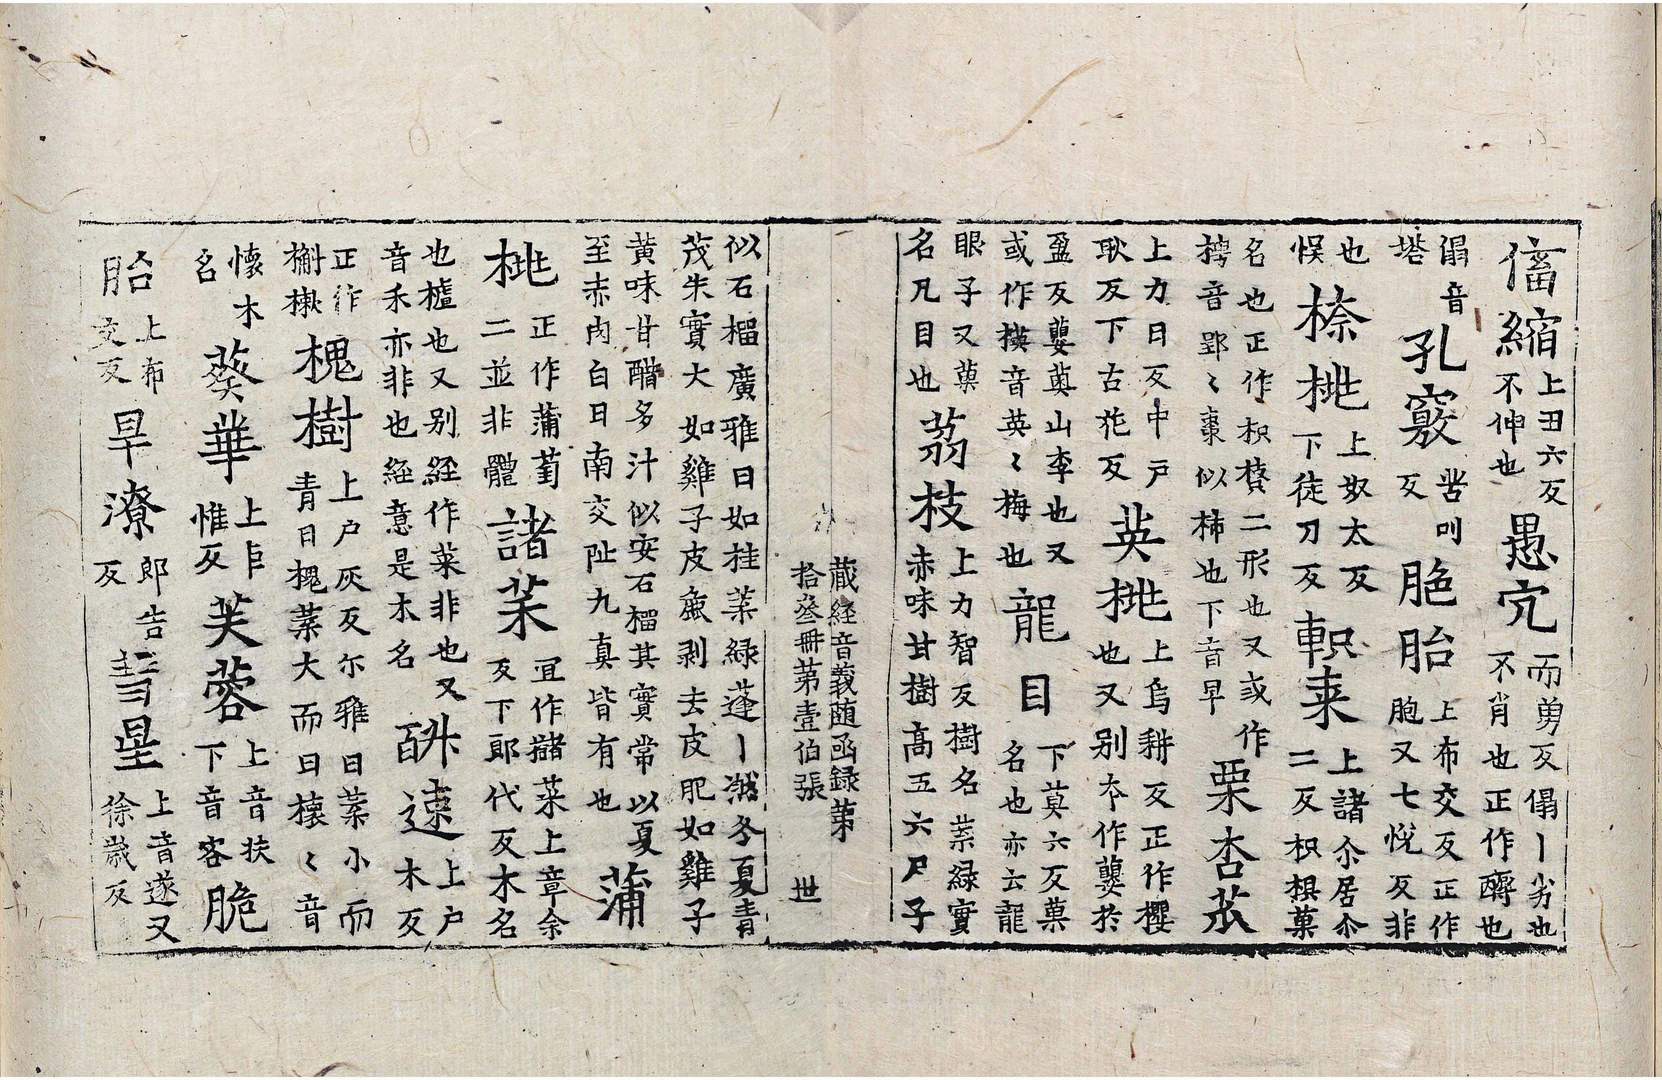 傗縮上丑六反不伸也愚宂而勇反傝丨劣也不肖也正作𨣙也
傝音塔孔竅苦叫反脃胎上布交反正作胞又七悅反非
也悮㮈桃上奴太反下徒刀反軹来上諸尒居尒二反枳椇菓
名也正作枳䔲二形也又或作㮹音郢〻棗似柿也下音早栗杏苽
上力日反中戶耿反下古花反英桃上烏耕反正作櫻也又别夲作蘡於
盈反蘡薁山李也又或作楧音英〻梅也龍目下莫六反菓名也亦云龍
眼子又菓名凡目也茘枝上力智反樹名葉緑實赤味甘樹髙五六尺子
藏經音義随函録第拾叁冊第壹伯張 世
似石榴廣雅曰如桂葉緑蓬丨㵣冬夏青茂朱實大如雞子皮麁剥去皮肥如雞子
黄味甘醋多汁似安石榴其實常以夏至赤肉白日南交阯九真皆有也蒲
桃正作蒲萄二並非體諸茱宜作櫧䓶上章余反下郎代反木名
也櫨也又别經作菜非也又音禾亦非也經意是木名𨠑遠上户木反
正作槲樕槐樹上户灰反尒雅曰葉小而青曰槐葉大而曰櫰〻音
懷木名葵華上𠂤惟反芙蓉上音扶下音容脆
胎上布交反早潦郎告反彗星上音遂又徐歲反